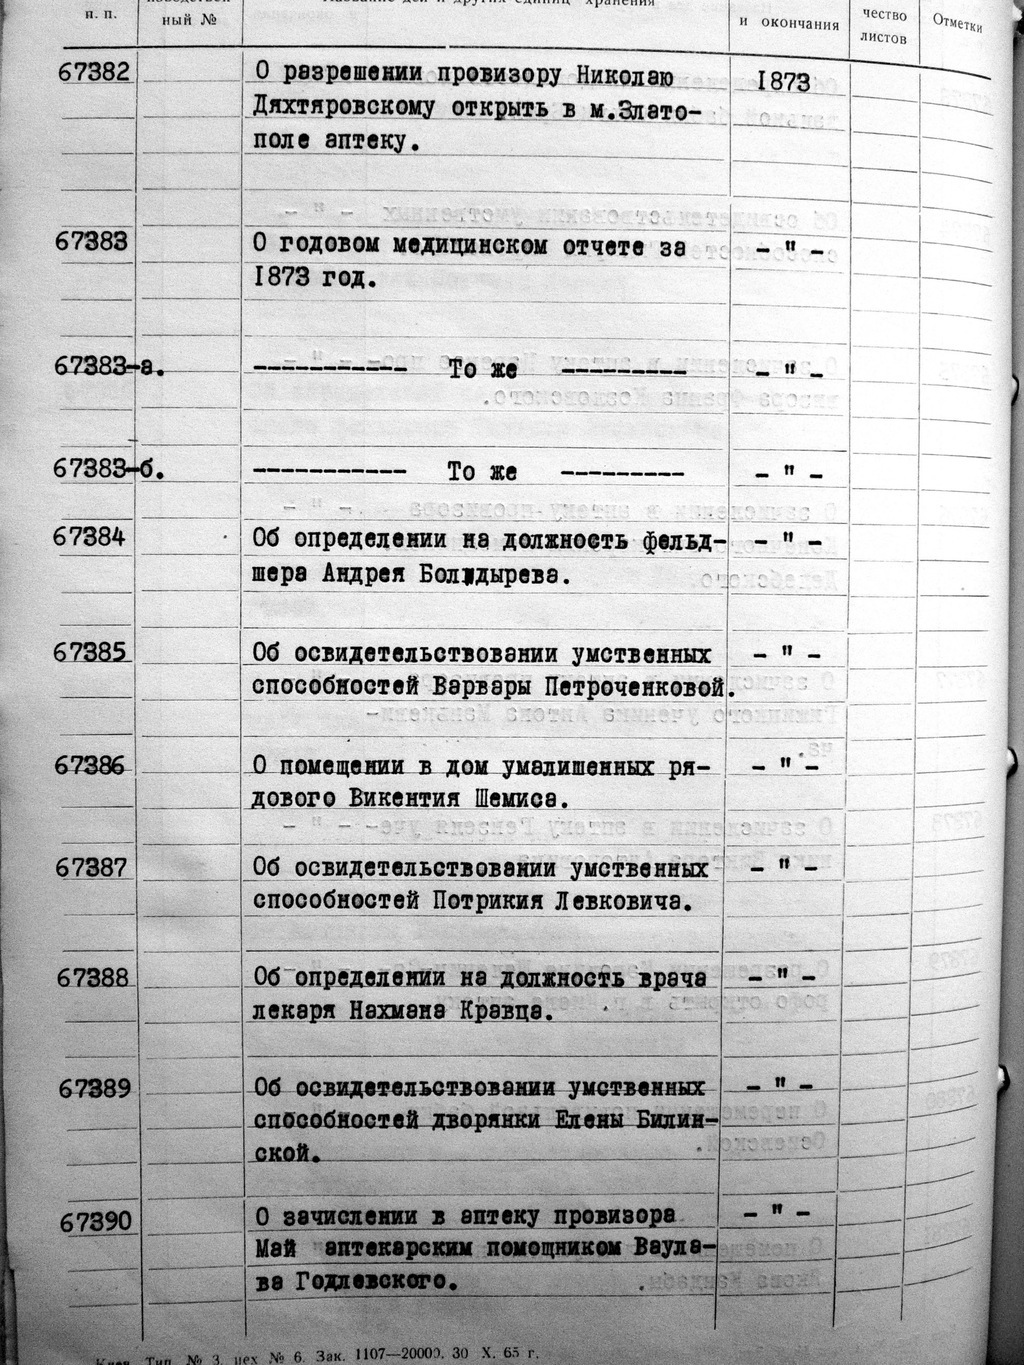 п. п.
ный №
Название дел и других единиц хранения
и окончания
чество
листов
Отметки
67382 О разрешении провизору Николаю 1873
Дяхтяровскому открыть в м.Злато-
поле аптеку.
67383 О годовом медицинском отчете за - " -
1873 год.
67383-а. ----------- То же --------- - " -
67383-б. ----------- То же --------- - " -
67384 Об определении на должность фельд- - " -
шера Андрея Болдырева.
67385 Об освидетельствовании умственных - " -
способностей Варвары Петроченковой.
67386 О помещении в дом умалишенных ря- - " -
дового Викентия Шемиса.
67387 Об освидетельствовании умственных - " -
способностей Потрикия Левковича.
67388 Об определении на должность врача - " -
лекаря Нахмана Кравца.
67389 Об освидетельствовании умственных - " -
способностей дворянки Елены Билин-
ской.
67390 О зачислении в аптеку провизора - " -
Май аптекарским помощником Ваула-
ва Годлевского.
Тип. № 3, цех № 6. Зак. 1107—20000. 30 X. 65 г.